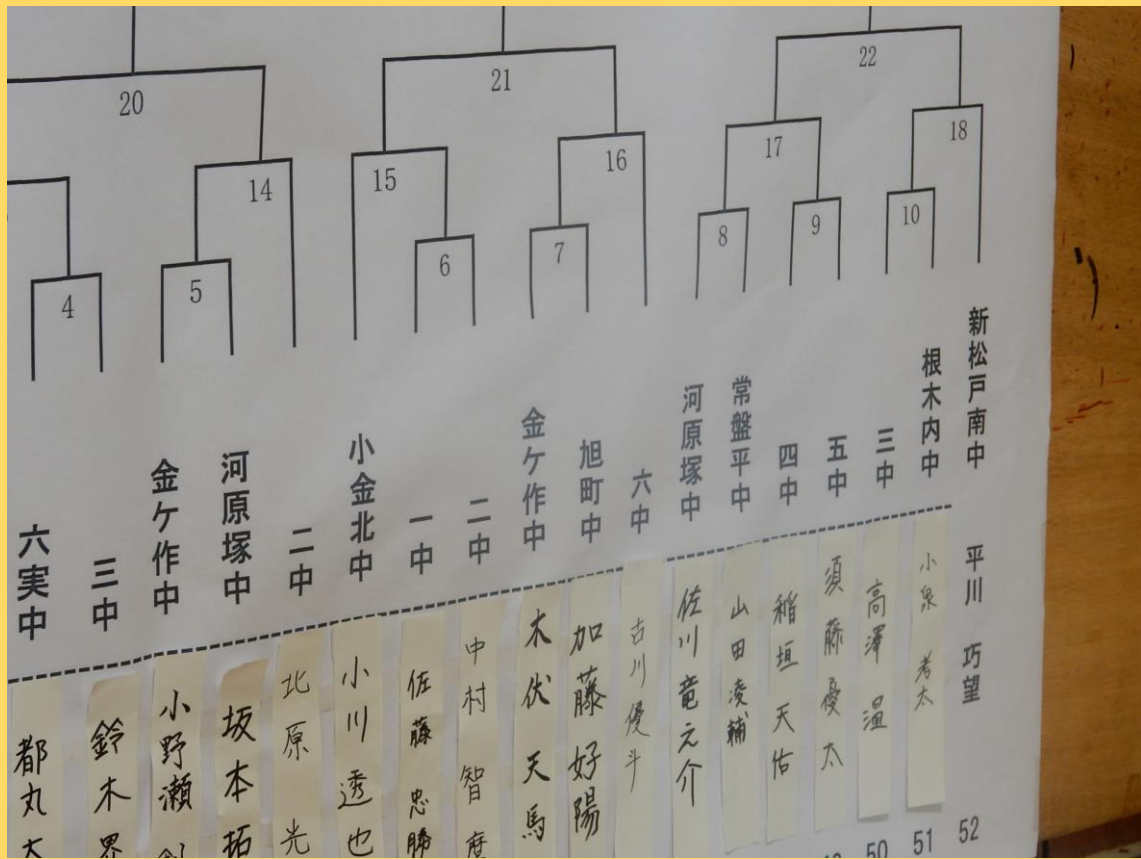 20
21
22
14
15
16
17
18
4
5
6
7
8
9
10
六実中
三中
金ケ作中
河原塚中
二中
小金北中
一中
二中
金ケ作中
旭町中
六中
河原塚中
常盤平中
四中
五中
三中
根木内中
新松戸南中
都丸
鈴木界
小野瀬
坂本拓
北原 光
小川 透也
佐藤 忠勝
中村 智
木伏 天馬
加藤 好陽
古川優斗
佐川竜之介
山田凌輔
稲垣 天佑
須藤優太
高澤 温
小泉 考太
平川 巧望
50
51
52